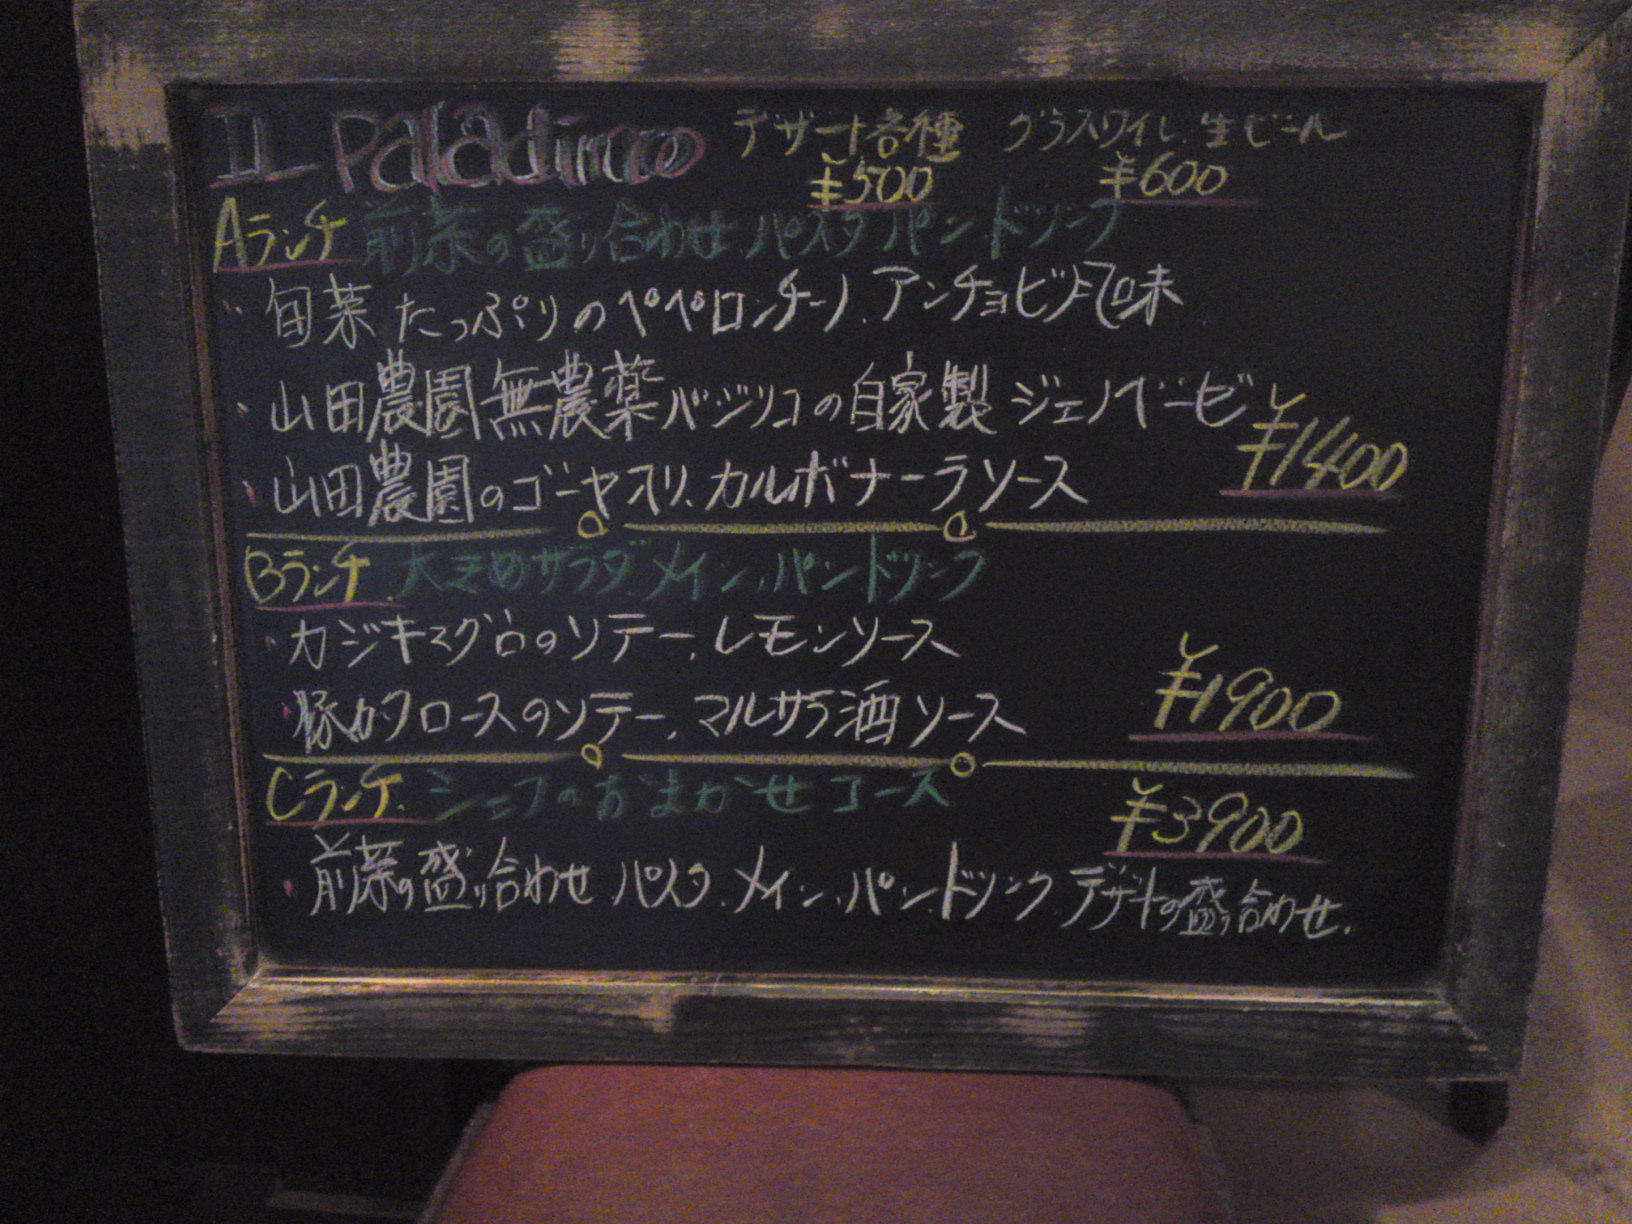 IL Paladino デザート各種 グラスワイン、生ビール
¥500 ¥600
Aランチ 前菜の盛り合わせ パスタ パン ドリンク
・旬菜たっぷりのペペロンチーノ、アンチョビ風味
・山田農園無農薬バジリコの自家製ジェノベーゼ
¥1400
・山田農園のゴーヤ入り、カルボナーラソース
Bランチ 大きめサラダ、メイン、パン、ドリンク
・カジキマグロのソテー、レモンソース
¥1900
・豚カタロースのソテー、マルサラ酒ソース
Cランチ、シェフのおまかせコース
¥3900
・前菜の盛り合わせ パスタ、メイン、パン、ドリンク、デザートの盛り合わせ.